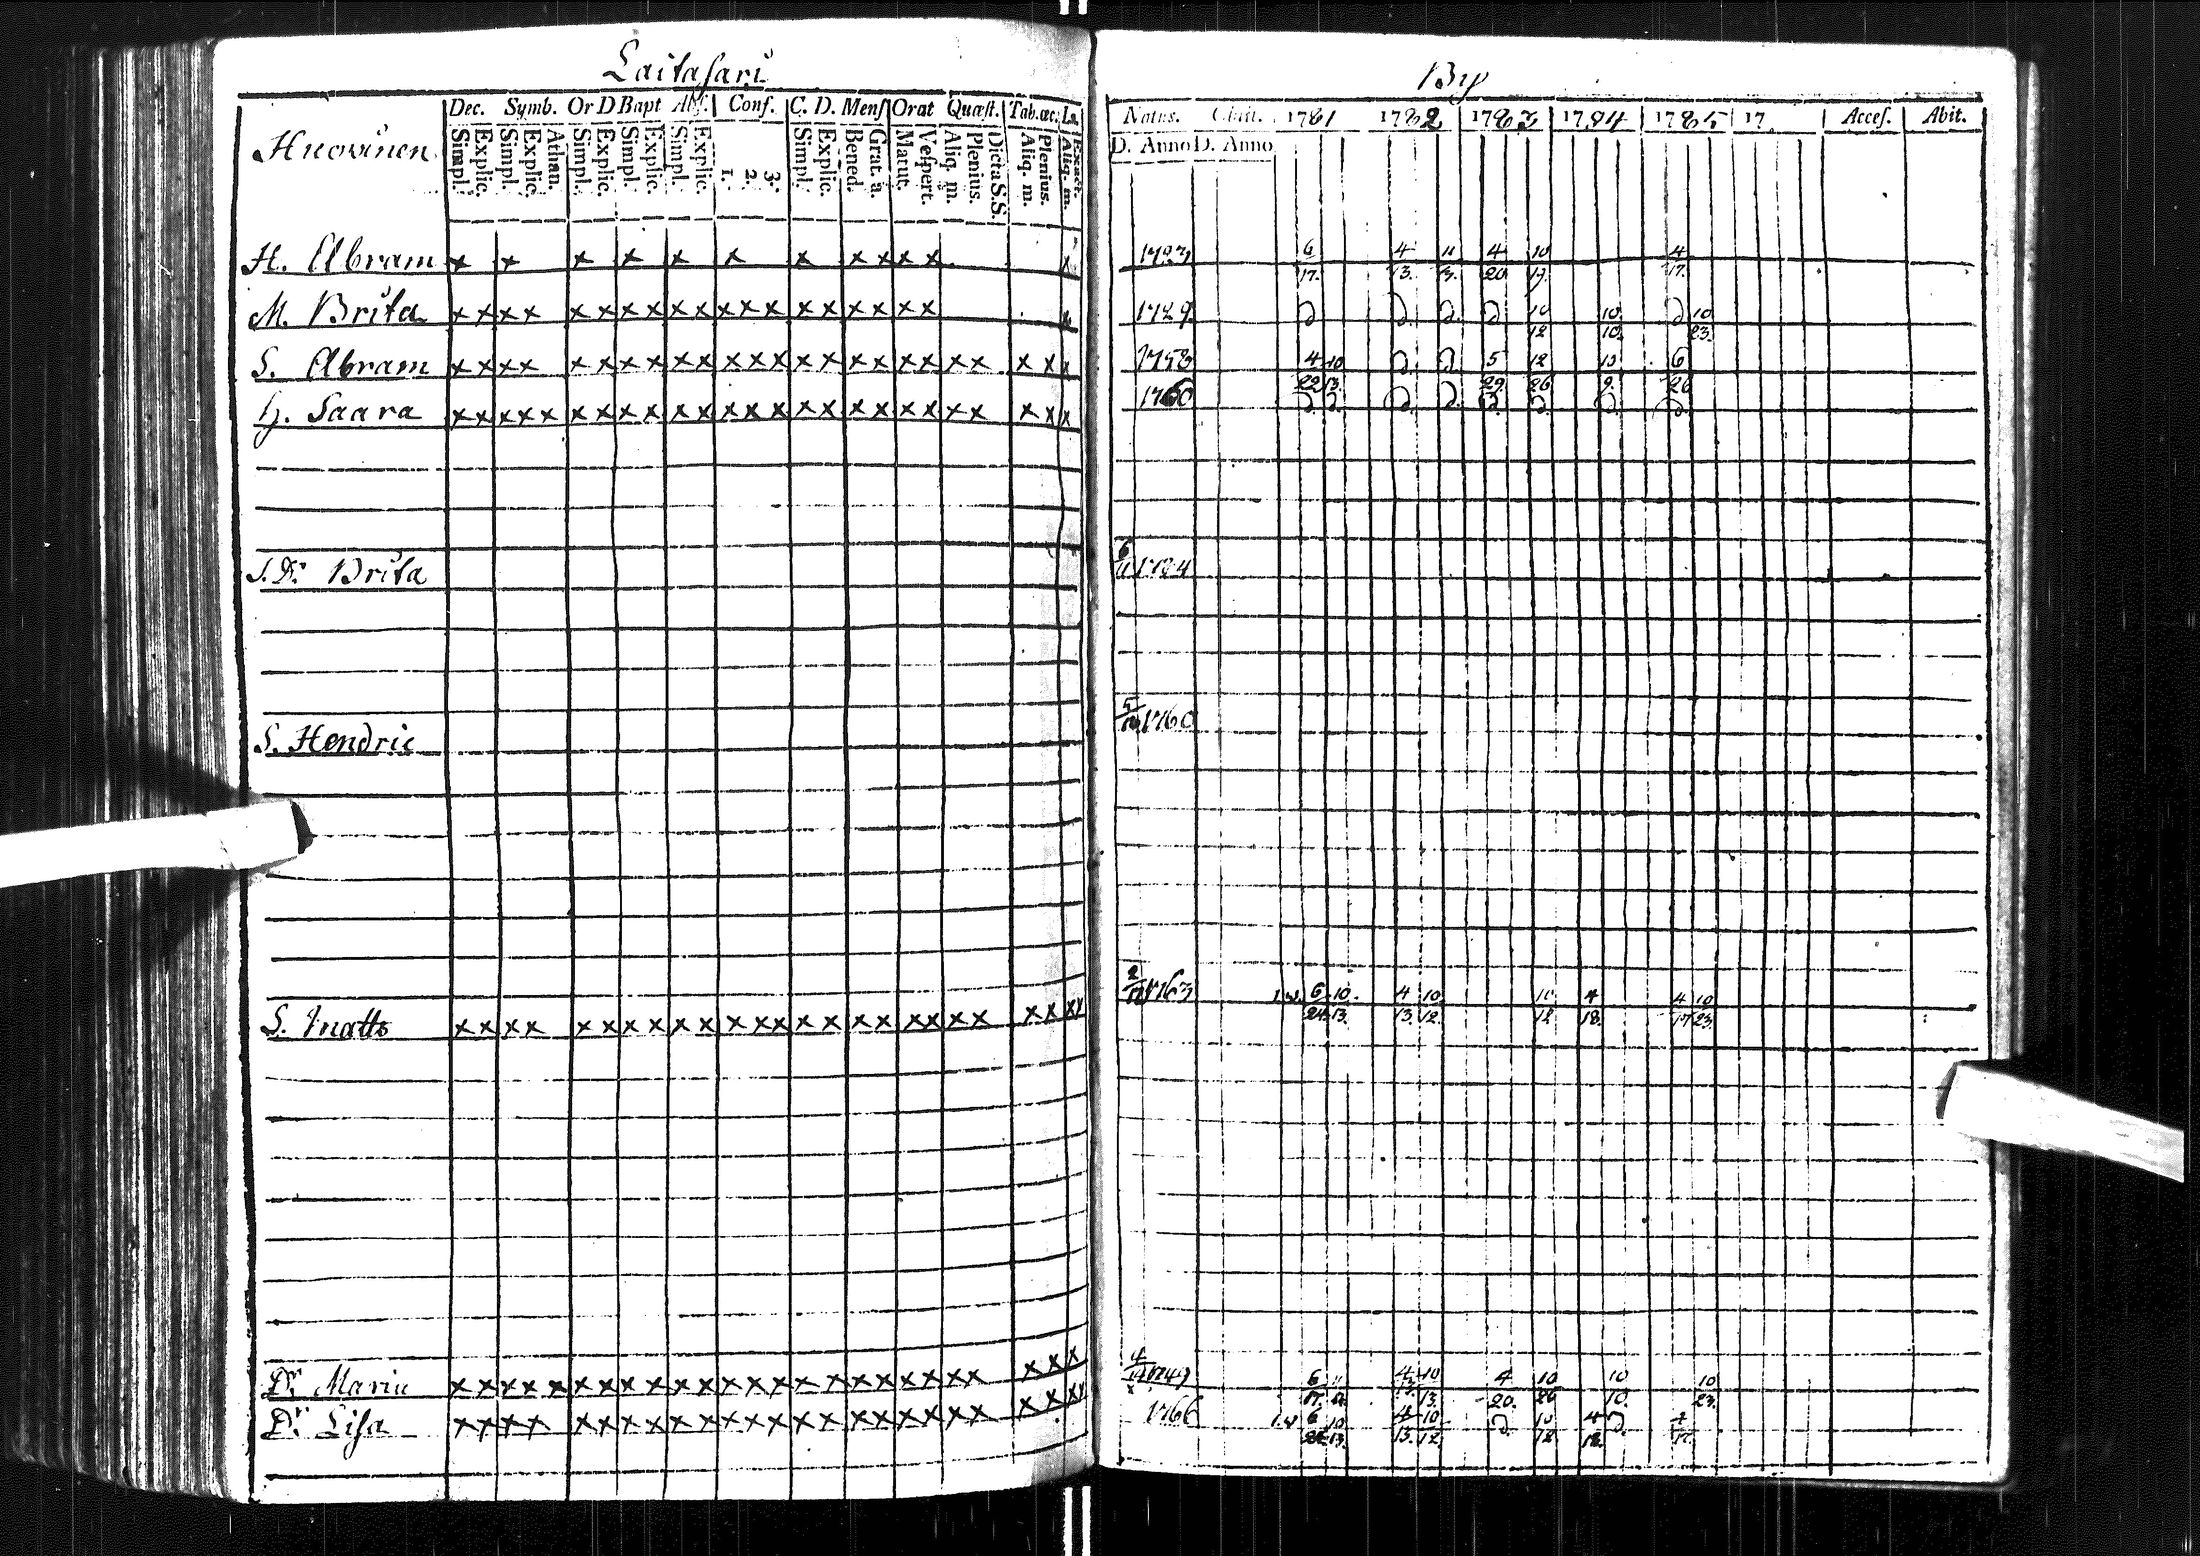 Laitasari By
Huovinen
Dec. Symb. Or D Bapt Abs. Conf. C. D. Mens Orat Quæst. Tab. œc.
Simpl. Explic. Simpl. Explic. Athan. Simpl. Explic. Simpl. Explic. Simpl. Explic. 1. 2. 3. Simpl. Explic. Bened. Grat. a. Matut. Vespert. Aliq. m. Plenius. Dicta S.S. Aliq. m. Plenius. Aliq. m. Exact.
Natus. Obiit. 1781 1782 1783 1784 1785 17 Acces. Abit.
D. Anno D. Anno
H. Abram x x x x x x x x x x x x 6/17. 4/13. 4/20 4/17.
M. Brita x x x x x x x x x x x x x x x x x x x x x 1729 10/12 10/10. 10/23.
S. Abram x x x x x x x x x x x x x x x x x x x x x x x x x x 4/22 10/13. 5/29 12/26 6/26
H. Saara x x x x x x x x x x x x x x x x x x x x x x x x x x x 1760
S. Dr. Brita 1784
S. Hendric 1760
S. Matts x x x x x x x x x x x x x x x x x x x x x x x x x x x 1763 6/24 10/13. 4/13 10/12. 10/12 4/18. 4/17 10/23.
Dr. Maria x x x x x x x x x x x x x x x x x x x x x x x x x x 1749 6/17. 10/13. 4/20. 10/26 10/10. 10/23
Dr. Lisa x x x x x x x x x x x x x x x x x x x x x x x x x x x 1766 6/24 10/13. 4/13. 10/12. 10/12 4/18. 4/17.